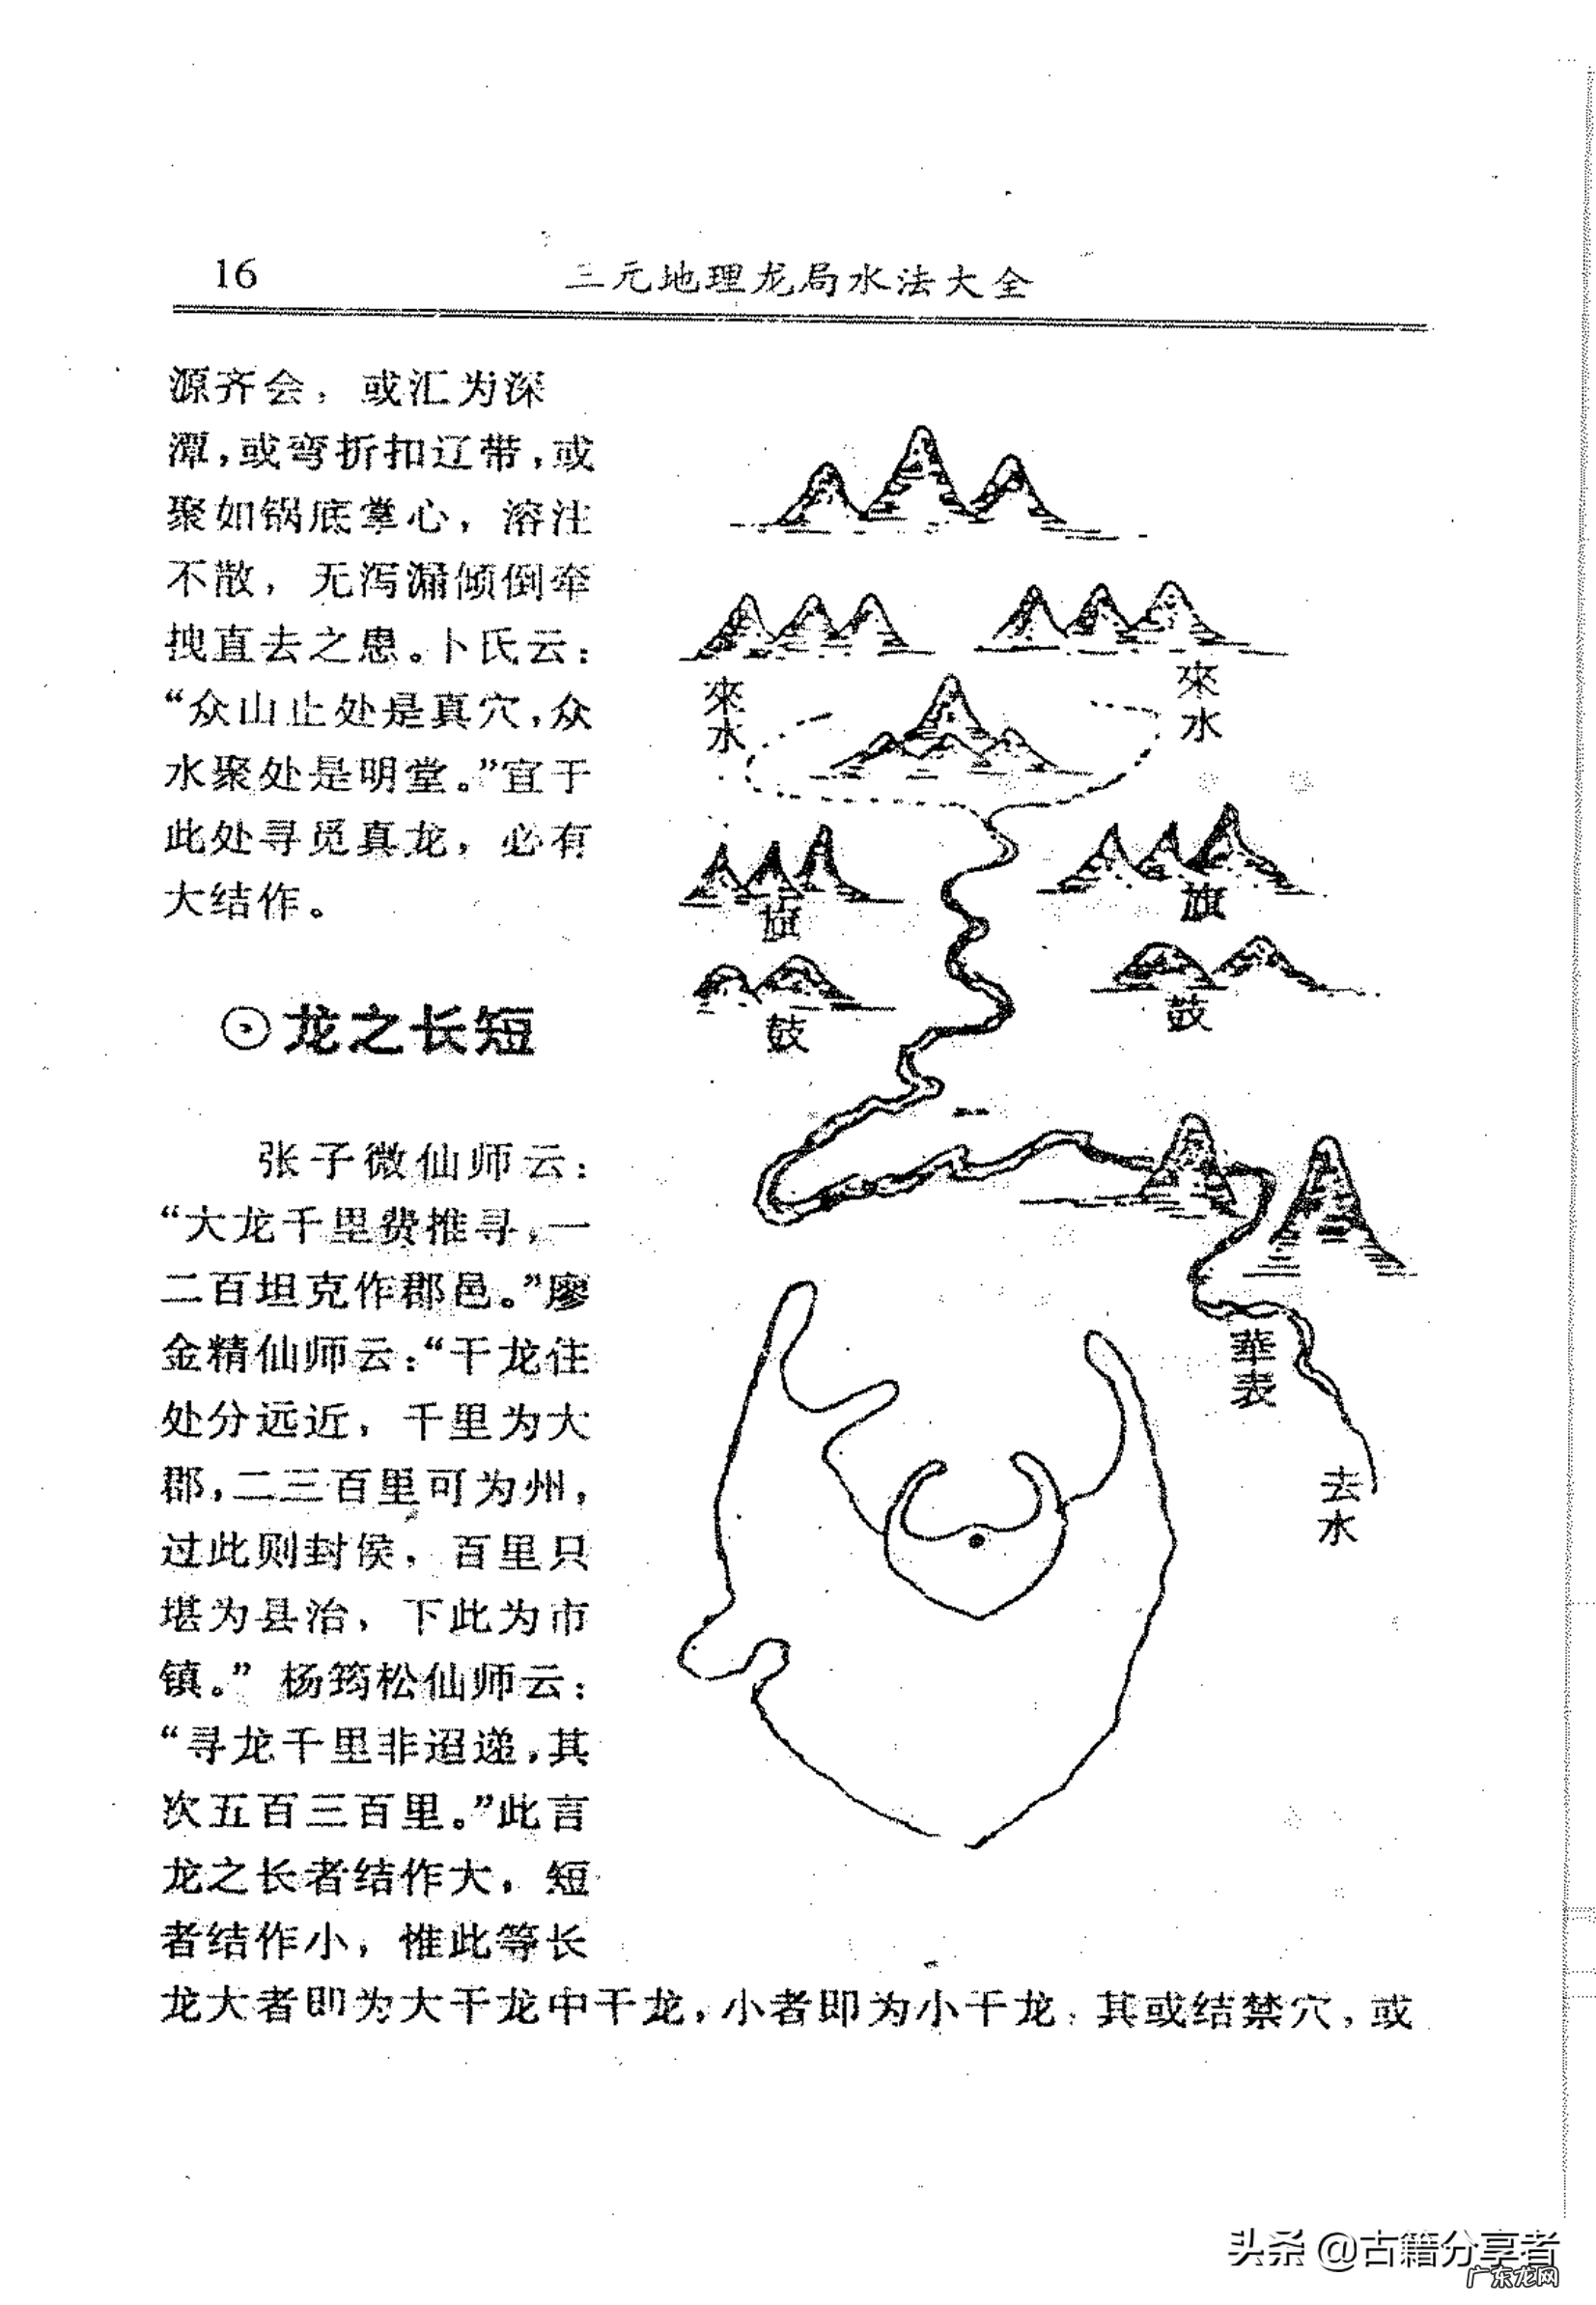 16
三元地理龙局水法大全
源齐会，或汇为深
潭，或弯折扣辽带，或
聚如锅底掌心，溶注
不散，无泻漏倾倒牵
拽直去之患。卜氏云：
“众山止处是真穴，众
水聚处是明堂。”宜于
此处寻觅真龙，必有
大结作。
⊙龙之长短
张子微仙师云：
“大龙千里费推寻，一
二百坦克作郡邑。”廖
金精仙师云：“干龙住
处分远近，千里为大
郡，二三百里可为州，
过此则封侯，百里只
堪为县治，下此为市
镇。”杨筠松仙师云：
“寻龙千里非迢递，其
次五百三百里。”此言
龙之长者结作大，短
者结作小，惟此等长
龙大者即为大干龙中干龙，小者即为小干龙，其或结禁穴，或
來水
來水
旗
旗
鼓
鼓
華表
去水
头条 @古籍分享者
广东龙网